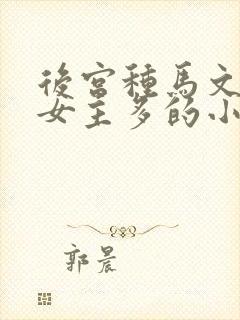 後宮種馬文
女主多的小
郭晨